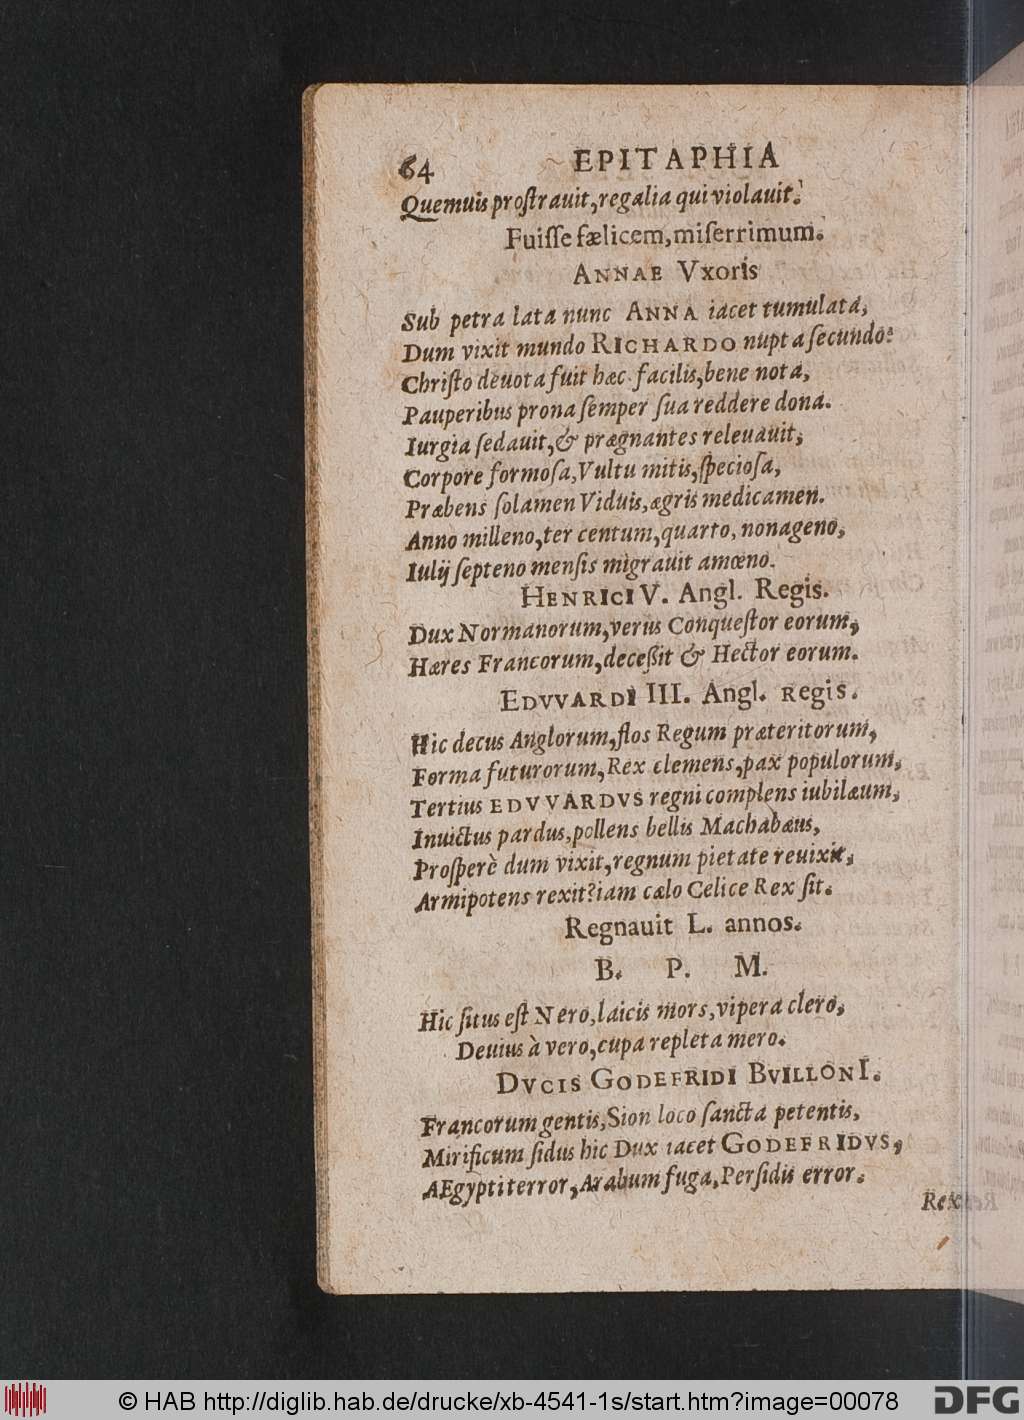 64 EPITAPHIA
Quemuis proſtrauit, regalia qui violauit.
Fuiſſe fælicem, miſerrimum.
ANNAE Vxoris
Sub petra lata nunc ANNA iacet tumulata,
Dum vixit mundo RICHARDO nupta ſecundo:
Chriſto deuota fuit hæc facilis, bene nota,
Pauperibus prona ſemper ſua reddere dona.
Iurgia ſedauit, & prægnantes releuauit,
Corpore formoſa, Vultu mitis, ſpecioſa,
Præbens ſolamen Viduis, ægris medicamen.
Anno milleno, ter centum, quarto, nonageno,
Iulij ſepteno menſis migrauit amœno.
HENRICI V. Angl. Regis.
Dux Normanorum, verus Conqueſtor eorum,
Hæres Francorum, deceßit & Hector eorum.
EDVVARDI III. Angl. Regis.
Hic decus Anglorum, flos Regum præteritorum,
Forma futurorum, Rex clemens, pax populorum,
Tertius EDVVARDVS regni complens iubilæum,
Inuictus pardus, pollens bellis Machabæus,
Proſperè dum vixit, regnum pietate reuixit,
Armipotens rexit? iam cælo Celice Rex ſit.
Regnauit L. annos.
B. P. M.
Hic ſitus eſt Nero, laicis mors, vipera clero,
Deuius à vero, cupa repleta mero.
DVCIS GODEFRIDI BVILLONI.
Francorum gentis, Sion loco ſancta petentis,
Mirificum ſidus hic Dux iacet GODEFRIDVS,
AEgypti terror, Arabum fuga, Perſidis error.
Rex
© HAB http://diglib.hab.de/drucke/xb-4541-1s/start.htm?image=00078
DFG